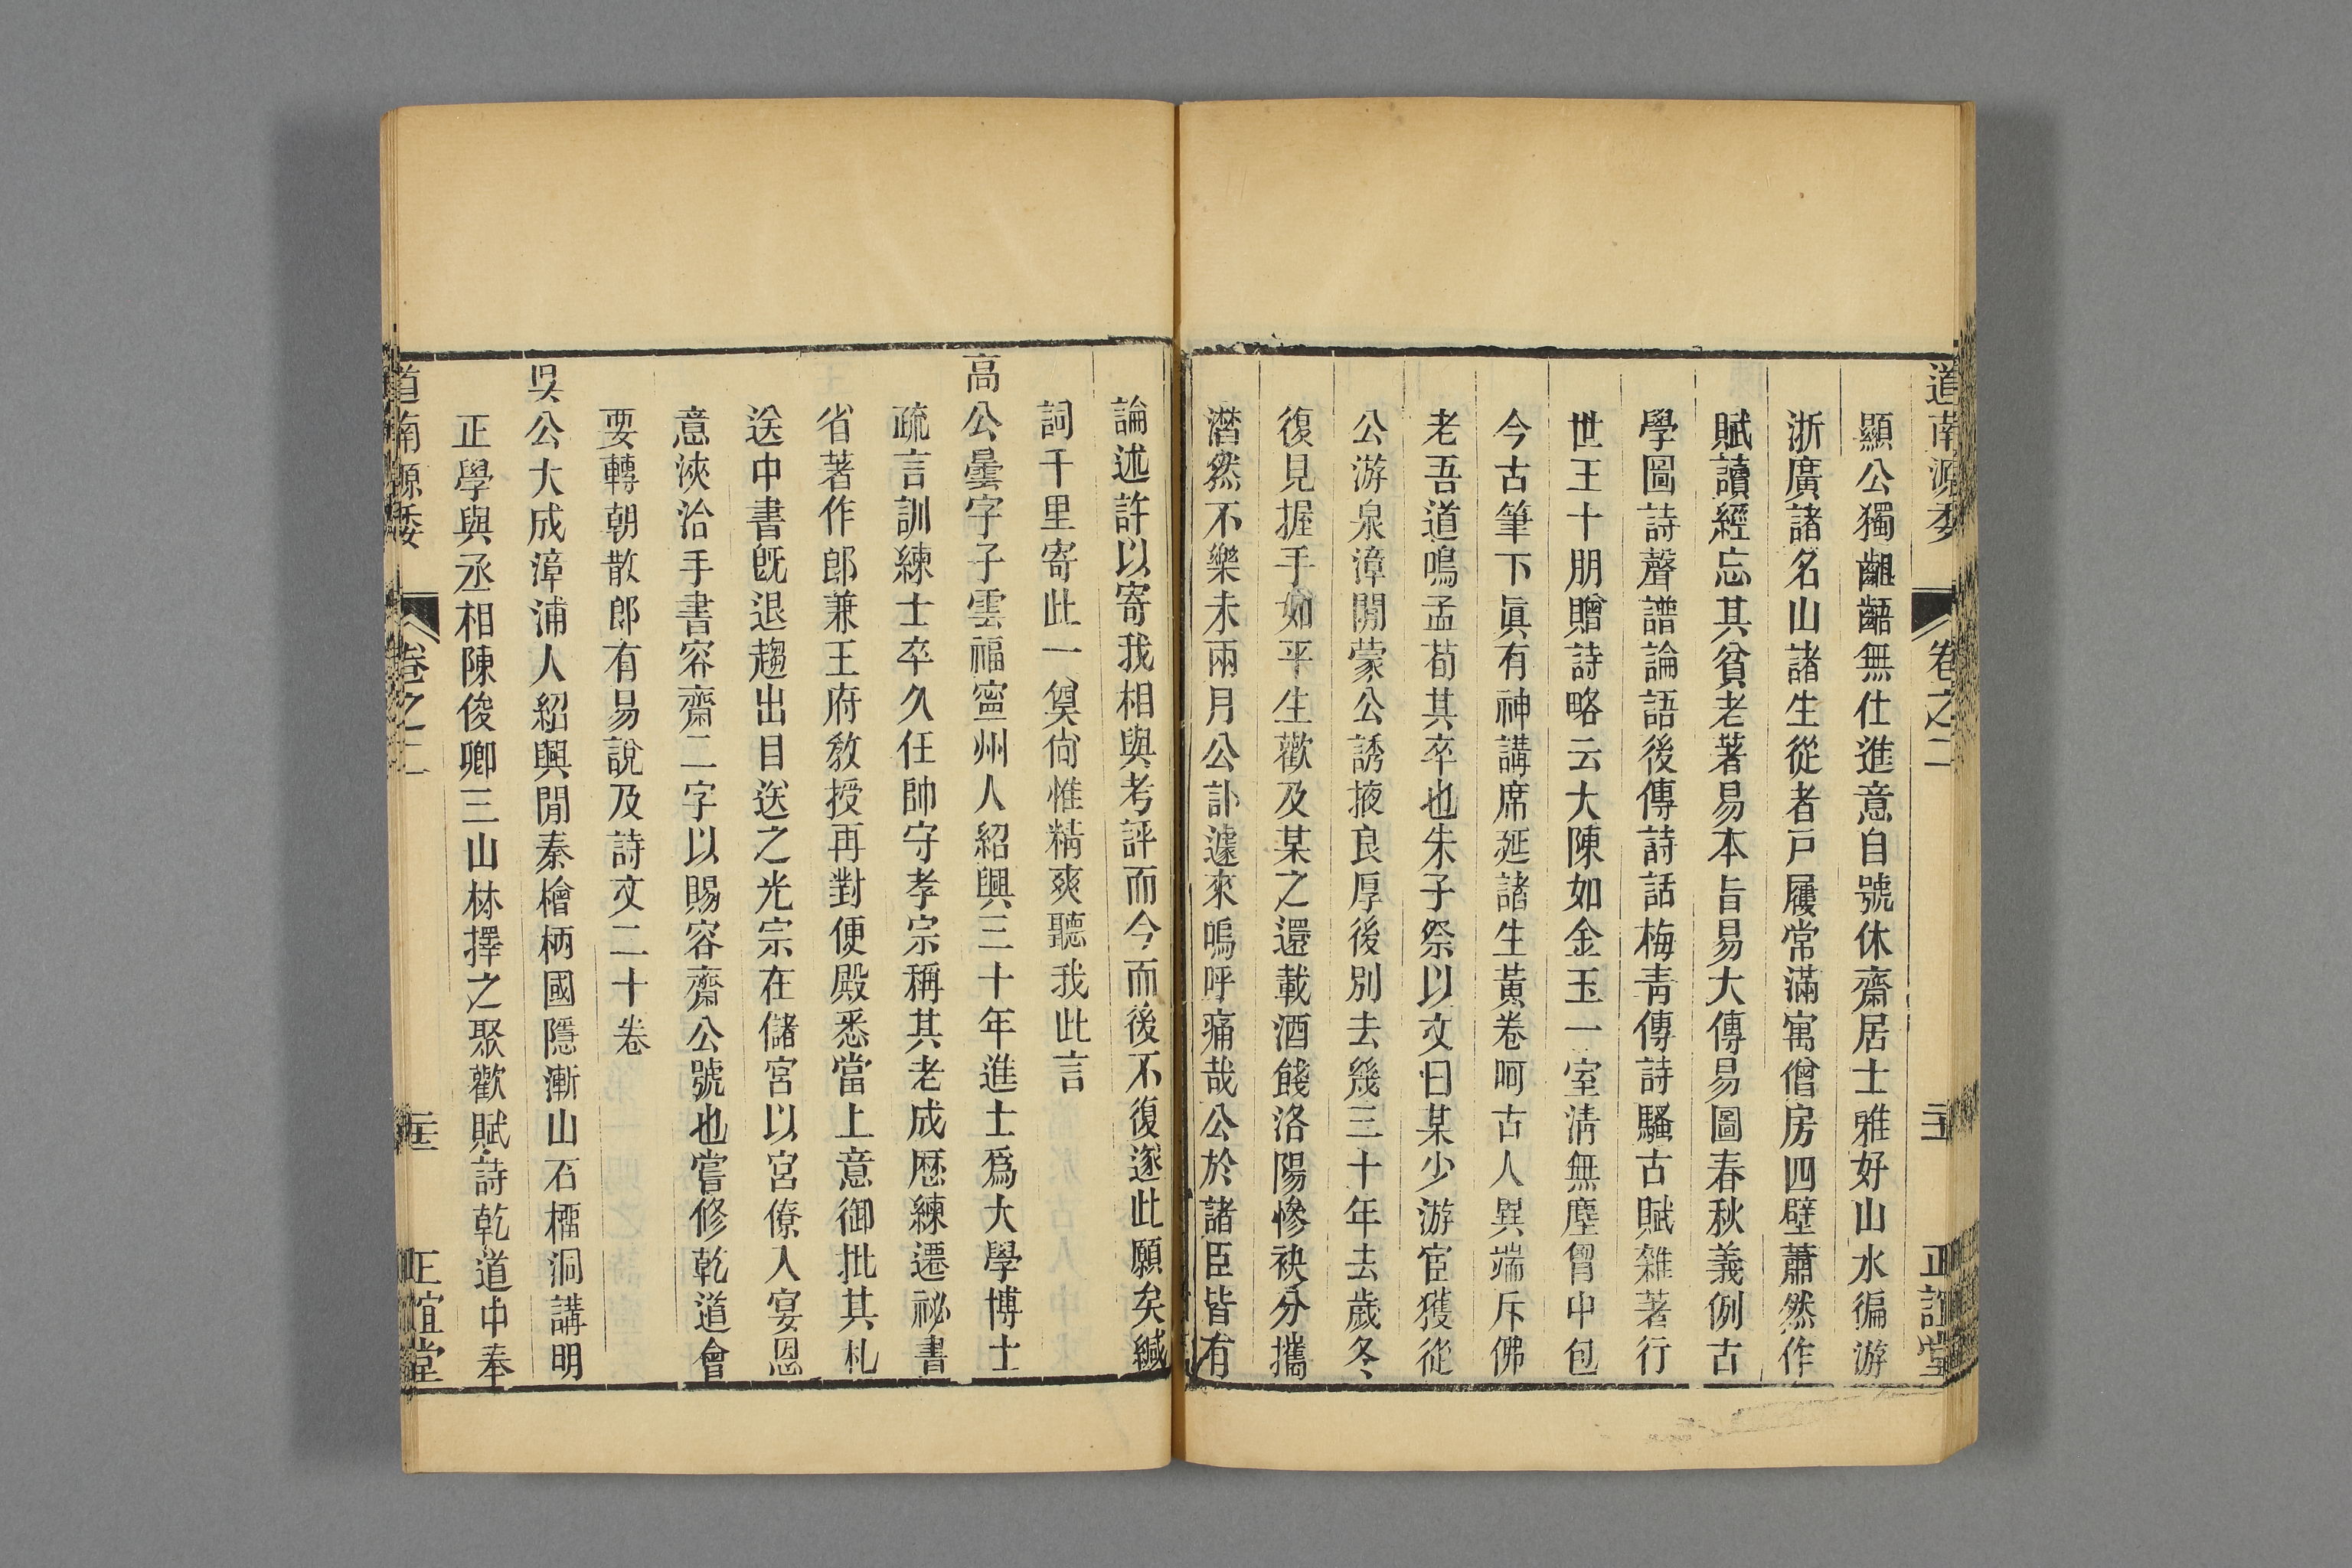 道南源委 卷之二 正誼堂
顯公獨齟齬無仕進意自號休齋居士雅好山水徧游
浙廣諸名山諸生從者戸屨常滿寓僧房四壁蕭然作
賦讀經忘其貧老著易本旨易大傳易圖春秋義例古
學圖詩聲譜論語後傳詩話梅靑傳詩騷古賦雜著行
世王十朋贈詩略云大陳如金玉一室淸無塵胷中包
今古筆下眞有神講席延諸生黃卷呵古人異端斥佛
老吾道鳴孟荀其卒也朱子祭以文曰某少游宦獲從
公游泉漳開蒙公誘掖良厚後別去幾三十年去歲冬
復見握手如平生歡及某之還載酒餞洛陽慘袂分攜
潛然不樂未兩月公訃遽來嗚呼痛哉公於諸臣皆有
論述許以寄我相與考評而今而後不復遂此願矣緘
詞千里寄此一奠尙惟精爽聽我此言
高公曇字子雲福寧州人紹興三十年進士爲大學博士
疏言訓練士卒久任帥守孝宗稱其老成歷練遷祕書
省著作郎兼王府敎授再對便殿悉當上意御批其札
送中書旣退趨出目送之光宗在儲宮以宮僚入宴恩
意浹洽手書容齋二字以賜容齋公號也嘗修乾道會
要轉朝散郎有易說及詩文二十卷
吳公大成漳浦人紹興閒秦檜柄國隱漸山石榴洞講明
正學與丞相陳俊卿三山林擇之聚歡賦詩乾道中奉
道南源委 卷之二 正誼堂